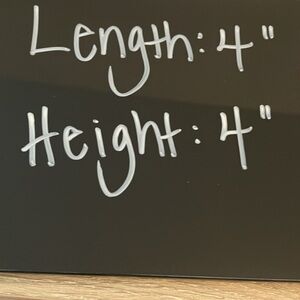 Length: 4"
Height: 4"